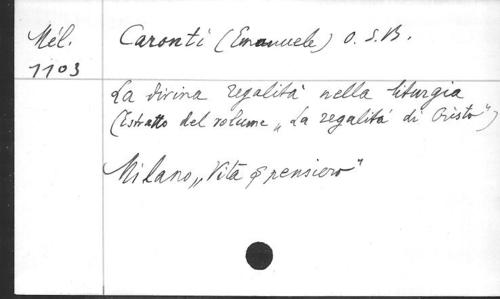 Mél. Caronti (Emanuele) O. S. B.
1103
La divina regalità nella liturgia
(Estratto del volume „La regalità di Cristo")
Milano „Vita e pensiero"